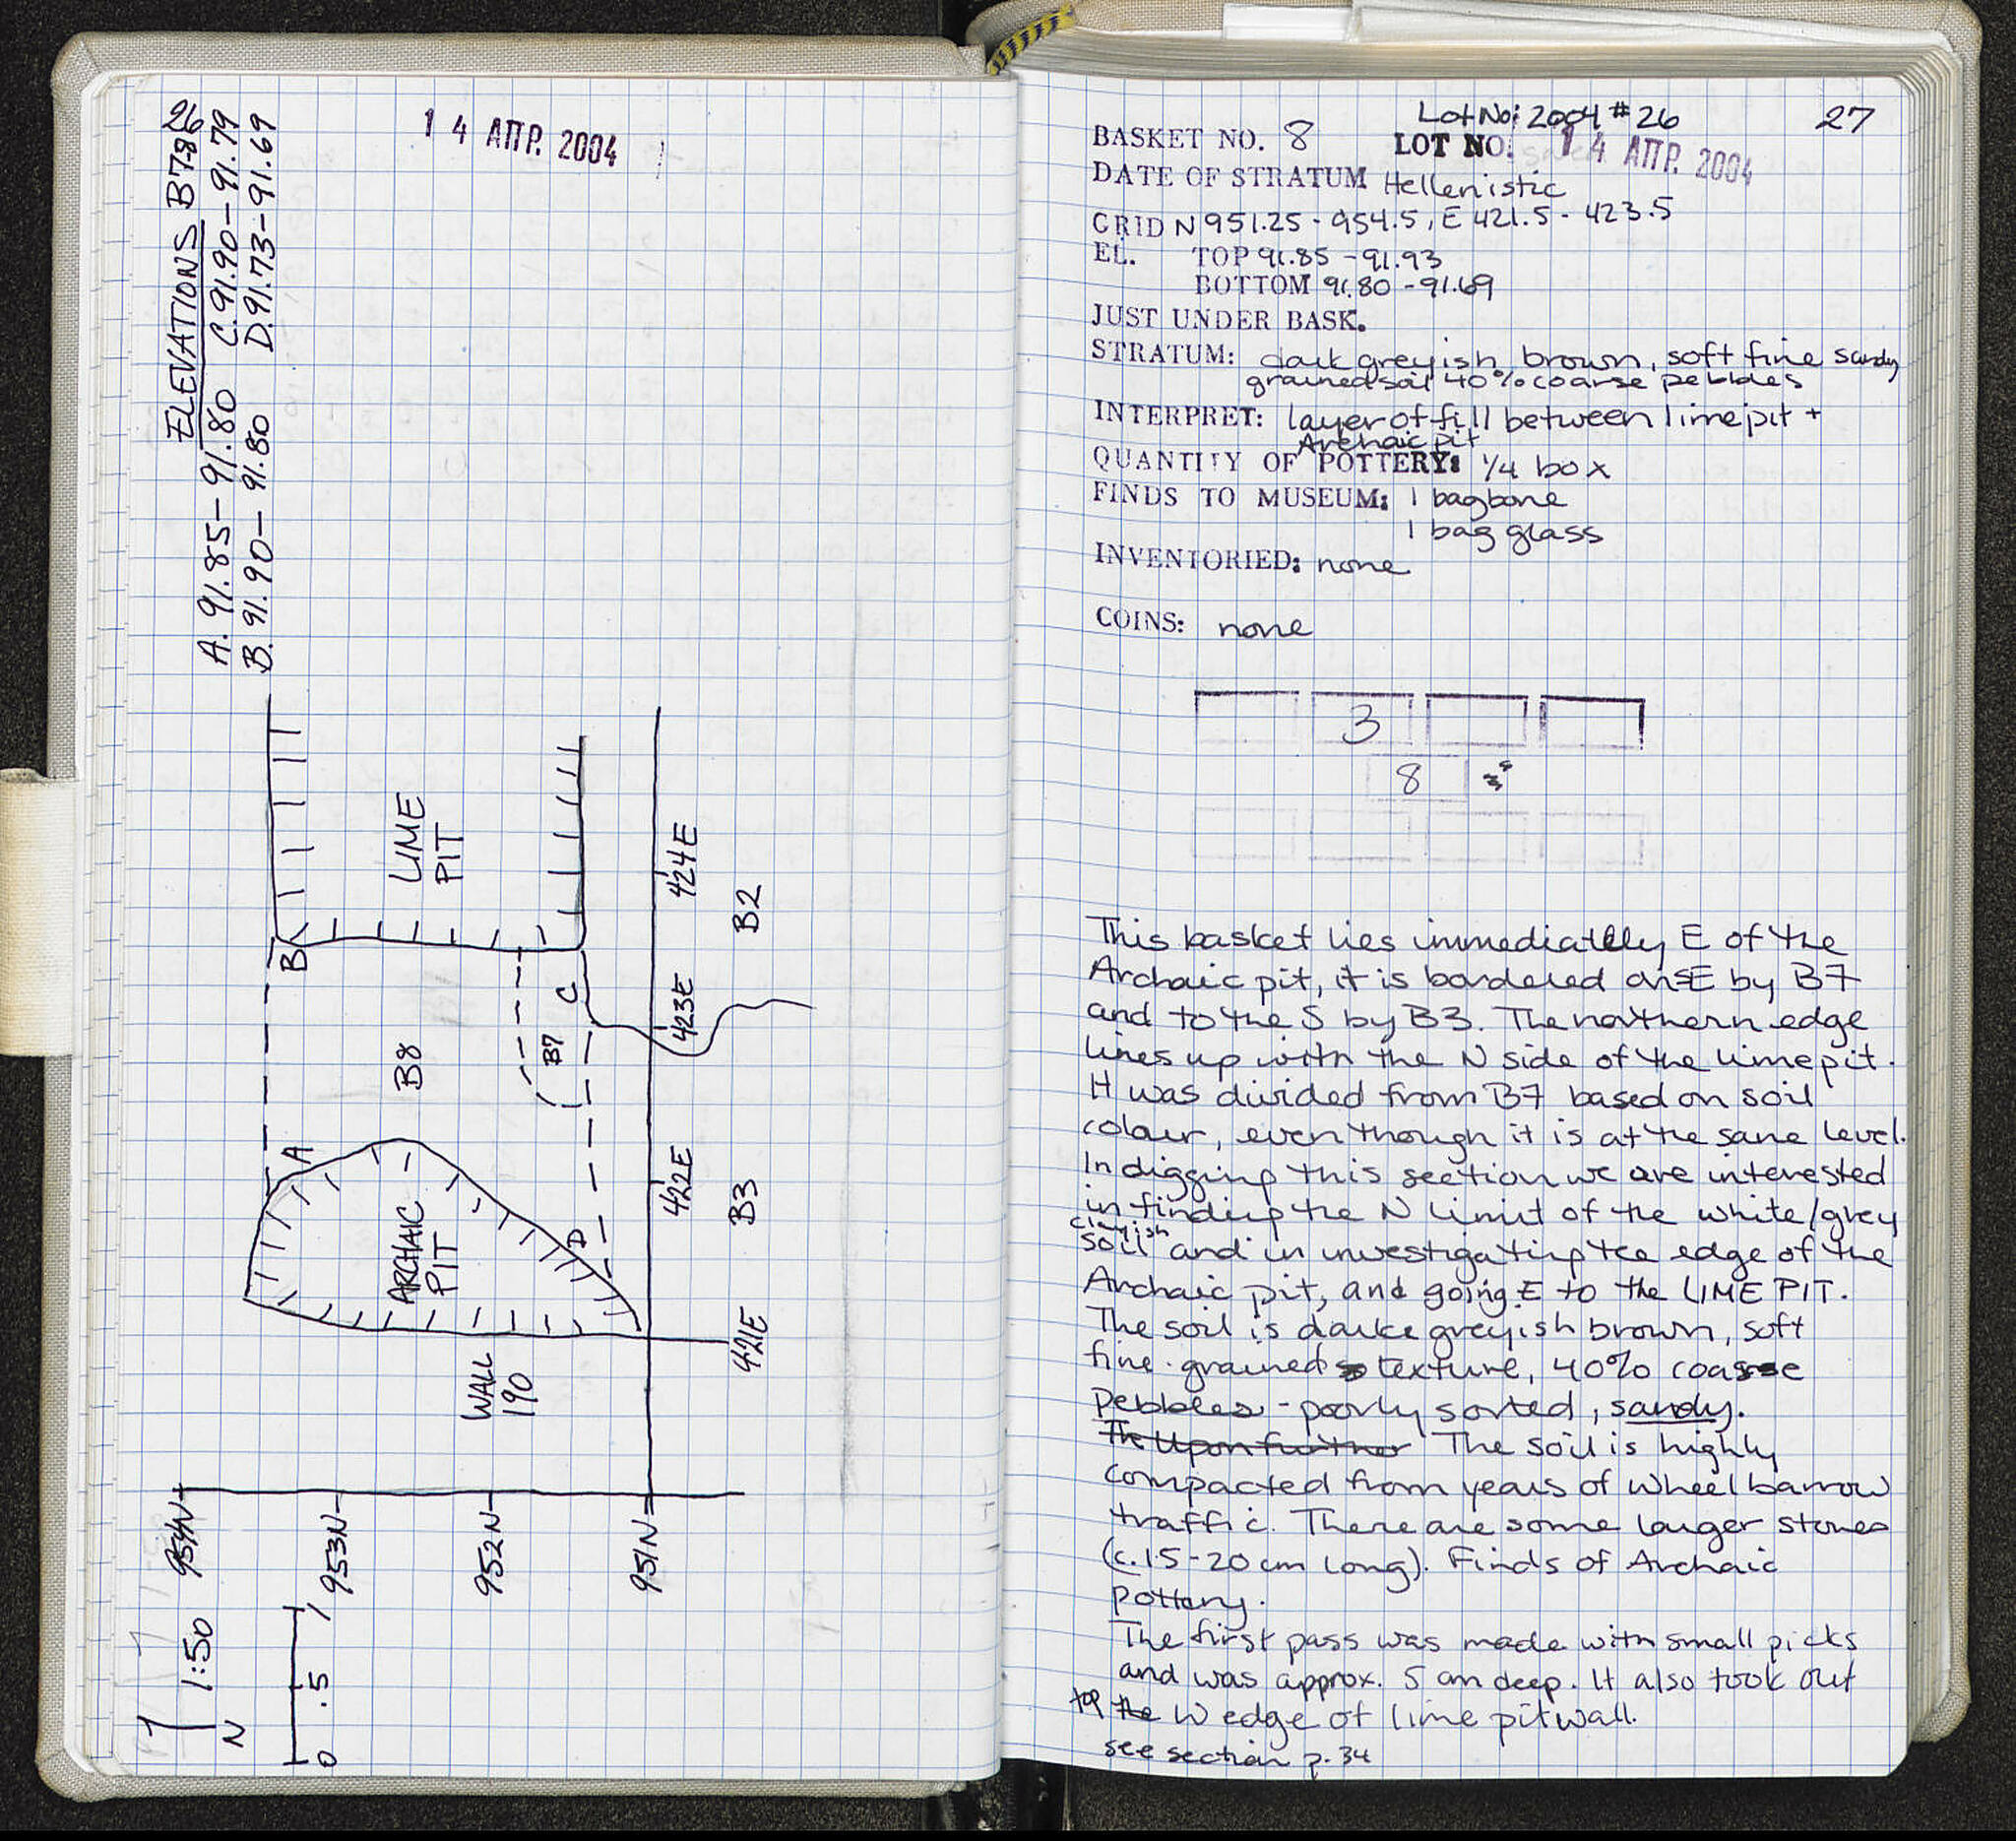 26
14 ΑΠΡ. 2004
ELEVATIONS B7+8
A. 91.85 – 91.80 C. 91.90 – 91.79
B. 91.90 – 91.80 D. 91.73 – 91.69
LIME
PIT
B
C
B7
B8
A
D
ARCHAIC
PIT
WALL
190
424E
423E
422E
421E
B2
B3
954N
953N
952N
951N
1:50
N
0 .5 1
27
Lot No: 2004 #26
BASKET NO. 8 LOT NO: 14 ΑΠΡ. 2004
DATE OF STRATUM Hellenistic
GRID N 951.25 - 954.5, E 421.5 - 423.5
EL. TOP 91.85 - 91.93
BOTTOM 91.80 - 91.69
JUST UNDER BASK.
STRATUM: dark greyish brown, soft fine sandy
grained soil 40% coarse pebbles
INTERPRET: layer of fill between lime pit +
Archaic pit
QUANTITY OF POTTERY: 1/4 box
FINDS TO MUSEUM: 1 bag bone
1 bag glass
INVENTORIED: none
COINS: none
3
8
This basket lies immediatlly E of the
Archaic pit, it is bordered on SE by B7
and to the S by B3. The northern edge
lines up with the N side of the lime pit.
It was divided from B7 based on soil
colour, even though it is at the same level.
In digging this section we are interested
in finding the N limit of the white/grey
clayish
soil and in investigating the edge of the
Archaic pit, and going E to the LIME PIT.
The soil is darke greyish brown, soft
fine grained texture, 40% coarse
pebbles - poorly sorted, sandy.
The Upon further The soil is highly
compacted from years of wheel barrow
traffic. There are some larger stones
(c. 15-20 cm long). Finds of Archaic
pottery.
The first pass was made with small picks
and was approx. 5 cm deep. It also took out
top the W edge of lime pit wall.
see section p. 34